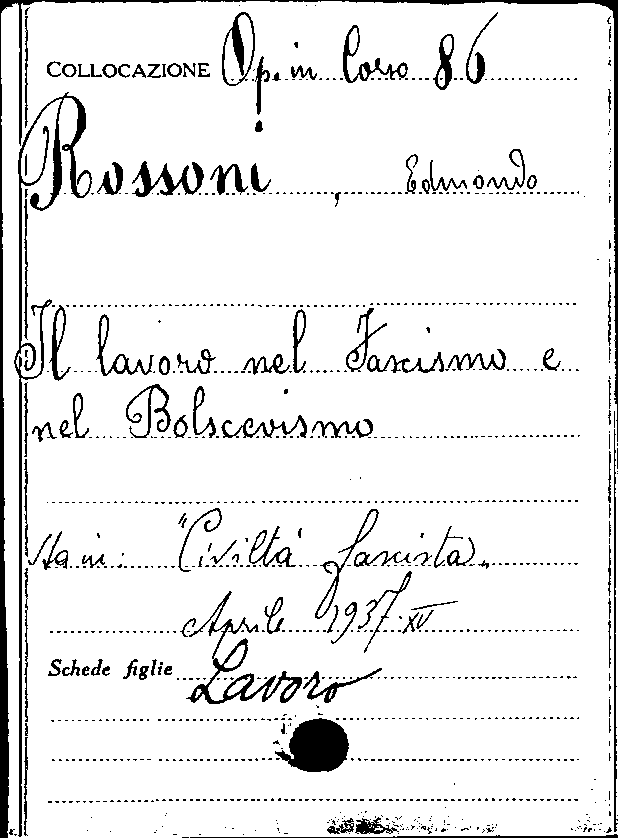 COLLOCAZIONE Op. in Corso 86
Rossoni, Edmondo
Il lavoro nel Fascismo e
nel Bolscevismo
sta in: "Civiltà fascista„
Aprile 1937·XV
Schede figlie Lavoro